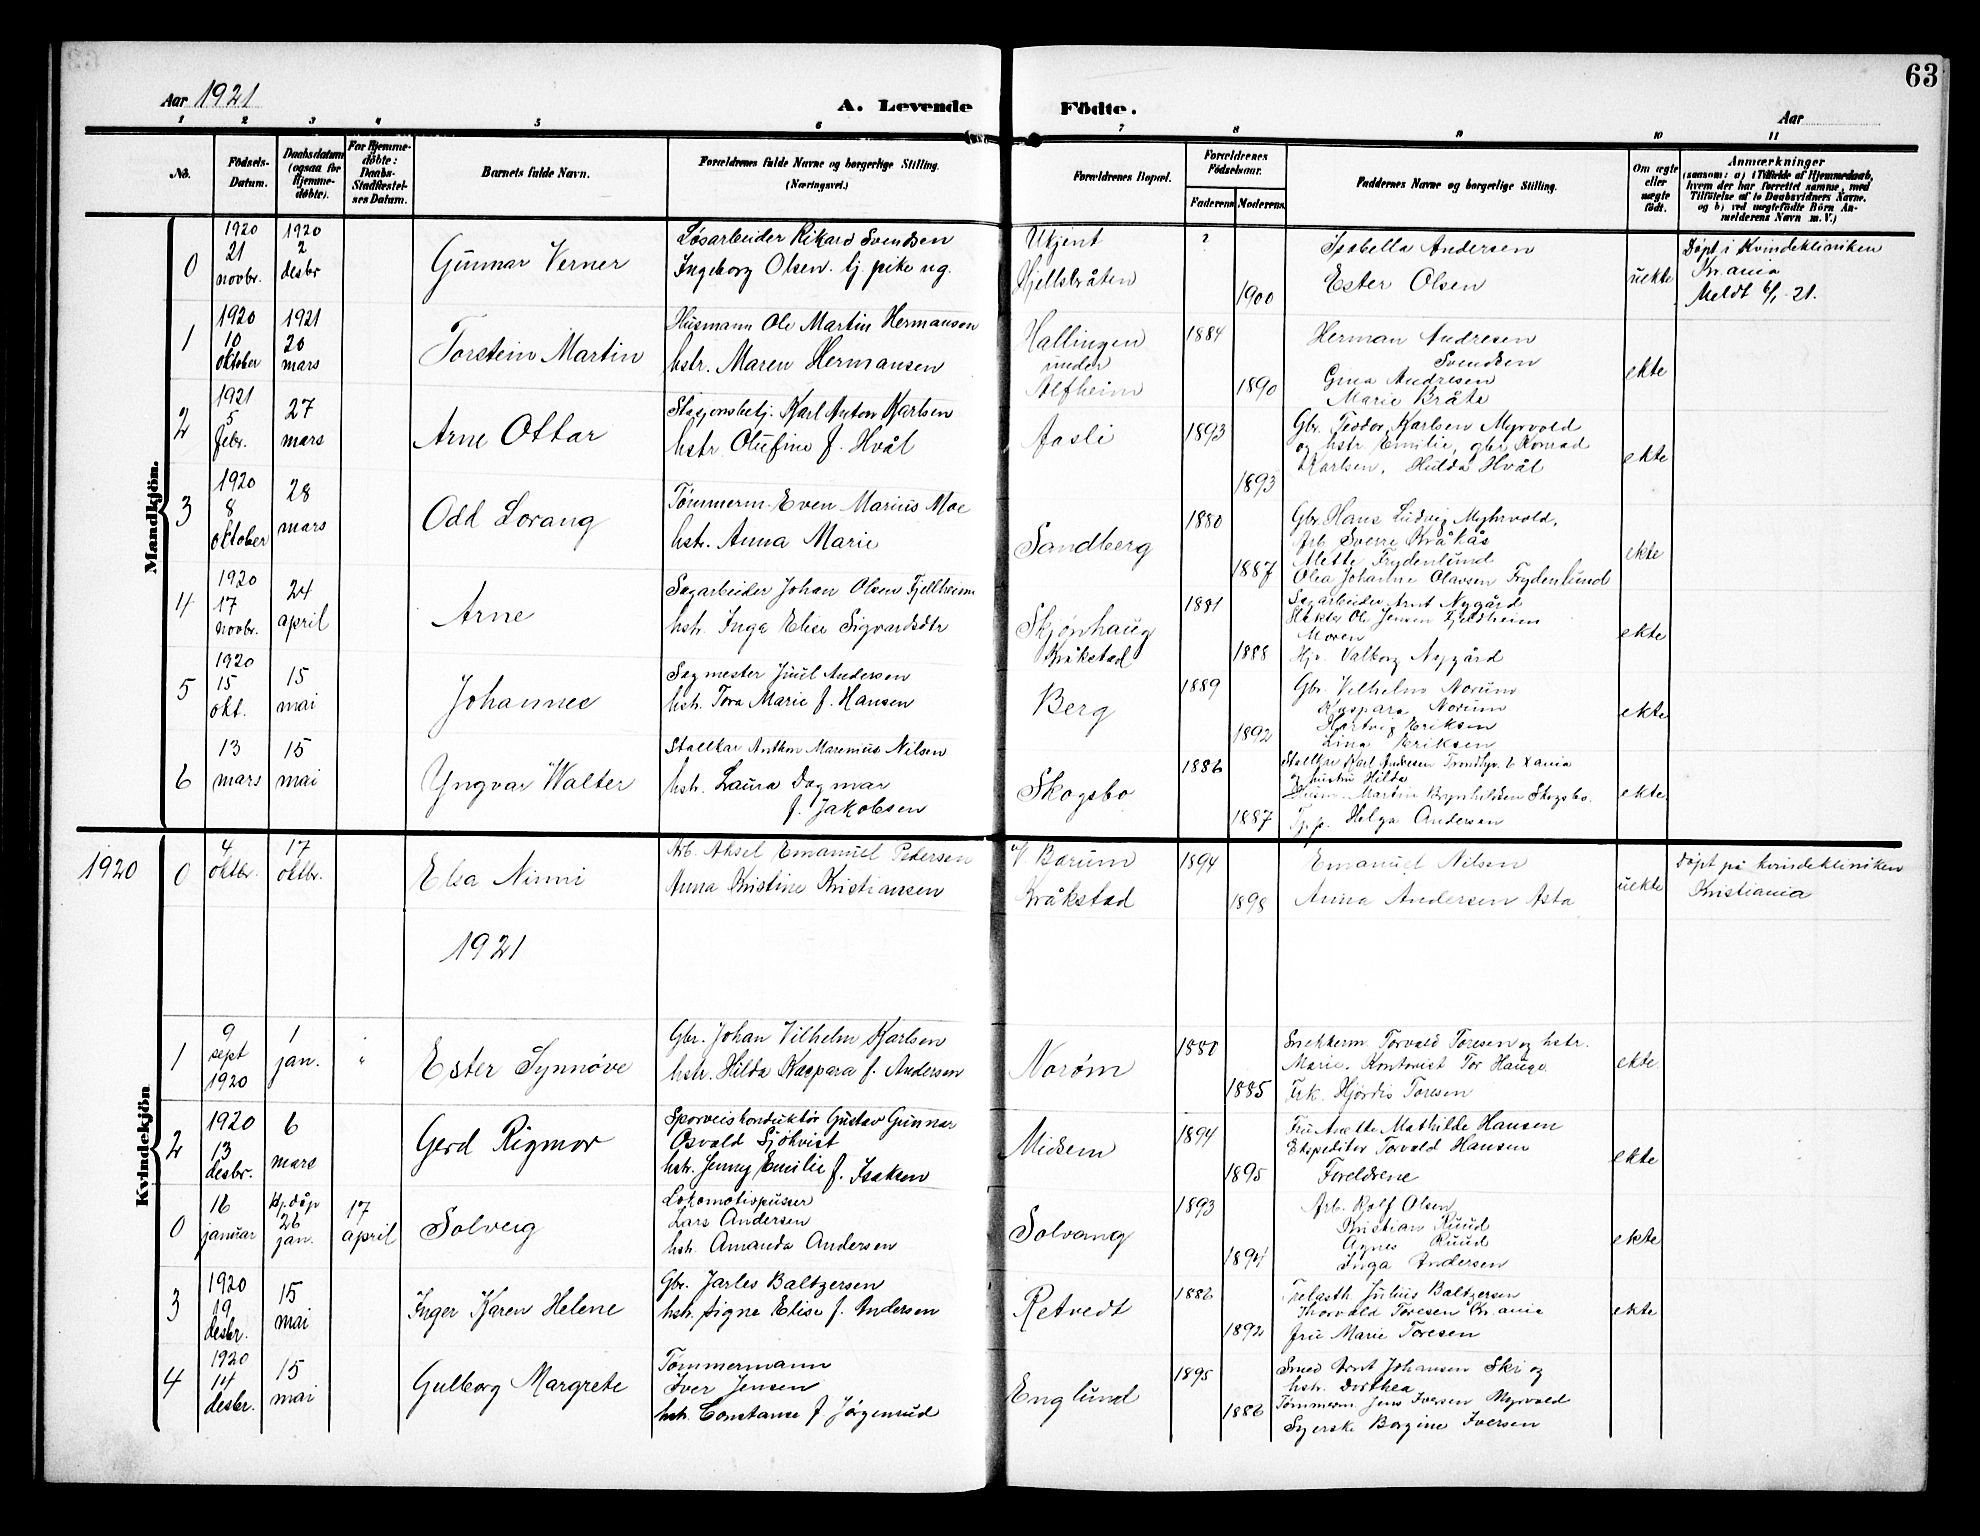 63
Aar 1921
A. Levende Födte.
Aar
1 2 3 4 5 6 7 8 9 10 11
No.
Födsels-
Datum.
Daabsdatum
(ogsaa for
Hjemme-
döbte).
For Hjemme-
döbte:
Daabs-
Stadfæstel-
ses Datum.
Barnets fulde Navn.
Forældrenes fulde Navne og borgerlige Stilling.
(Næringsvei.)
Forældrenes Bopæl.
Forældrenes
Födselsaar.
Faderens Moderens
Faddernes Navne og borgerlige Stilling.
Om ægte
eller
uægte
født.
Anmærkninger
(saasom: a) i Tilfælde af Hjemmedaab,
hvem der har forrettet samme, med
Tilföielse af to Daabsvidners Navne.
og b) ved uægtefödte Börn An-
melderens Navn m. V.)
Mandkjön.
0
1920
21
novbr.
1920
2
desbr
Gunnar Verner
Løsarbeider Rikard Svendsen
Ingeborg Olsen. tj. pike ug.
Ukjent
Hjellsbråten
?
1900
Isabella Andersen
Ester Olsen
uekte
Döpt i Kvindekliniken
Kr.ania
Meldt 6/1-21.
1
1920
10
oktober
1921
20
mars
Torstein Martin
Husmann Ole Martin Hermansen
hstr. Maren Hermansen
Hallingen
under
Alfheim
1884
1890
Herman Andresen
Svendsen
Gina Andresen
Marie Bråte
ekte
2
1921
5
febr.
27
mars
Arne Ottar
Stasjonsbetj. Karl Anton Karlsen
hstr Olufine f. Hvål
Aasli
1893
1893
Gbr. Teodor Karlsen Myrvold
og hstr Emilie, gbr Konrad
Karlsen, Hulda Hvål
ekte
3
1920
8
oktober
28
mars
Odd Lorang
Tømmerm. Even Marius Moe
hstr. Anna Marie
Sandberg
1880
1887
Gbr. Hans Ludvig Myhrvold,
Arb. Sverre Kråkås
Mette Frydenlund
Olea Johanne Olavsen Frydenlund
ekte
4
1920
17
novbr.
24
april
Arne
Sagarbeider Johan Olsen Fjellheim
hstr. Inga Elise Sigvardsdtr
Skjønhaug
Kråkstad
1881
1888
Sagarbeider Arnt Nygård
Ole Jensen Fjeldheim
Moren
Hjv. Valborg Nygård
ekte
5
1920
15
okt.
15
mai
Johannes
Sagmester Juul Andersen
hstr. Tora Marie f. Hansen
Berg
1889
1892
Gbr. Vilhelm Norum
Kaspara Norum
Hartvig Eriksen
Lina Eriksen
ekte
6
13
mars
15
mai
Yngvar Walter
Stallkar Anthon Marenius Nilsen
hstr. Laura Dagmar
f. Jakobsen
Skogsbo
1886
1887
Stallkr Karl Andresen Trondhj. 6 Xania
og hustru Hilda
Husm. Martin Brynhildsen Skogsbo.
Tj.p. Helga Andersen
ekte
Kvindekjön
1920
0
4
oktbr.
17
oktbr.
Elsa Ninni
Arb. Aksel Emanuel Pedersen
Anna Kristine Kristiansen
V Barum
Kråkstad
1894
1898
Emanuel Nilsen
Anna Andersen Asta
uekte
Döpt på kvindekliniken
Kristiania
1921
1
9
sept
1920
1
jan.
"
Ester Synnøve
Gbr. Johan Vilhelm Karlsen
hstr. Hilda Kaspara f. Andersen
Norøm
1880
1885
Snekkerm. Torvald Toresen og hstr.
Marie. Kontorist Tor Hauge
Frk. Hjørdis Toresen
ekte
2
1920
13
desbr.
6
mars
Gerd Rigmor
Sporveiskonduktør Gustav Gunnar
Osvald Sjökvist
hstr. Jenny Emilie f. Isaksen
Midsem
1894
1895
Fru Anette Mathilde Hansen
Ekspeditor Torvald Hansen
Foreldrene
ekte
0
16
januar
hj.døp
26
jan.
17
april
Solveig
Lokomotivpusser
Lars Andersen
hstr. Amanda Andersen
Solvang
1893
1894
Arb. Rolf Olsen
Kristian Ruud
Agnes Ruud
Inga Andersen
ekte
3
1920
19
desbr.
15
mai
Inger Karen Helene
Gbr. Jarles Baltzersen
hstr. Signe Elise f. Andersen
Retvedt
1886
1892
Trelasth. Julius Baltzersen
Thorvald Toresen Kr.ania
fru Marie Toresen
ekte
4
1920
14
desbr.
15
mai
Gulborg Margrete
Tømmermann
Iver Jensen
hstr. Constanse f Jörgenrud
Englund
1895
1886
Smed Arnt Johansen Ski og
hstr. Dorthea
Tømmerm. Jens Iversen Myrvold
Syerske Borgine Iversen